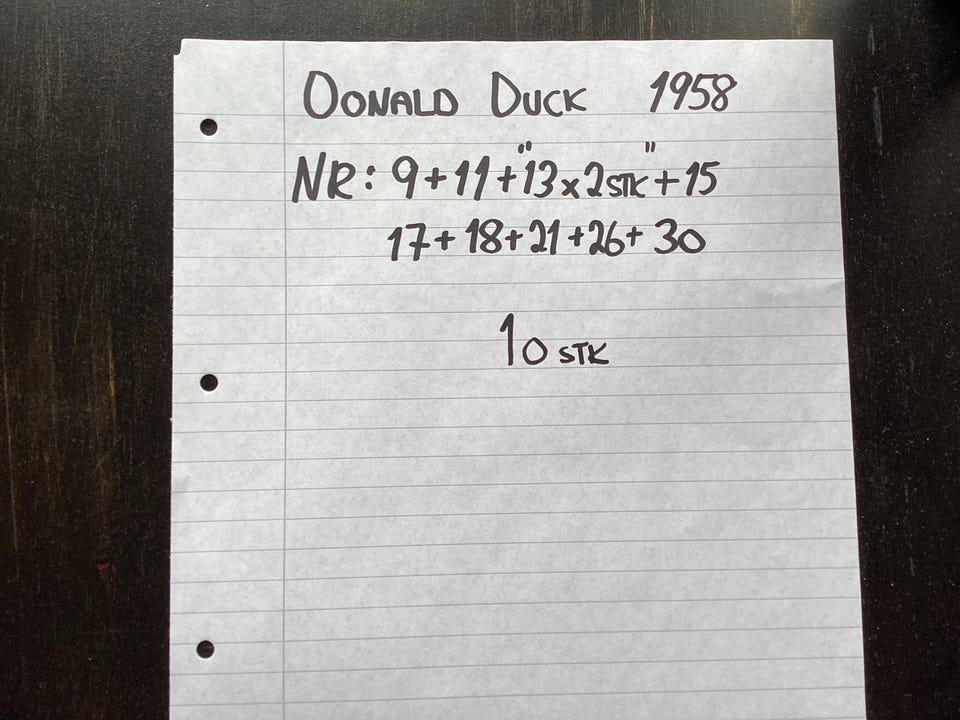 DONALD DUCK 1958
NR: 9+11+"13x2STK"+15
17+18+21+26+30
10 STK